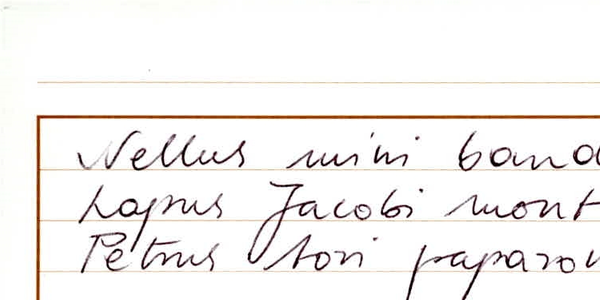 Nellus mini band
Lapus Jacobi mont
Petrus tori paparon